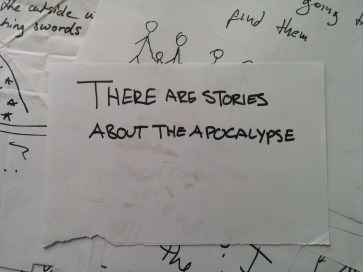 the outside u
hing swords
going t
find them
THERE ARE STORIES
ABOUT THE APOCALYPSE
the